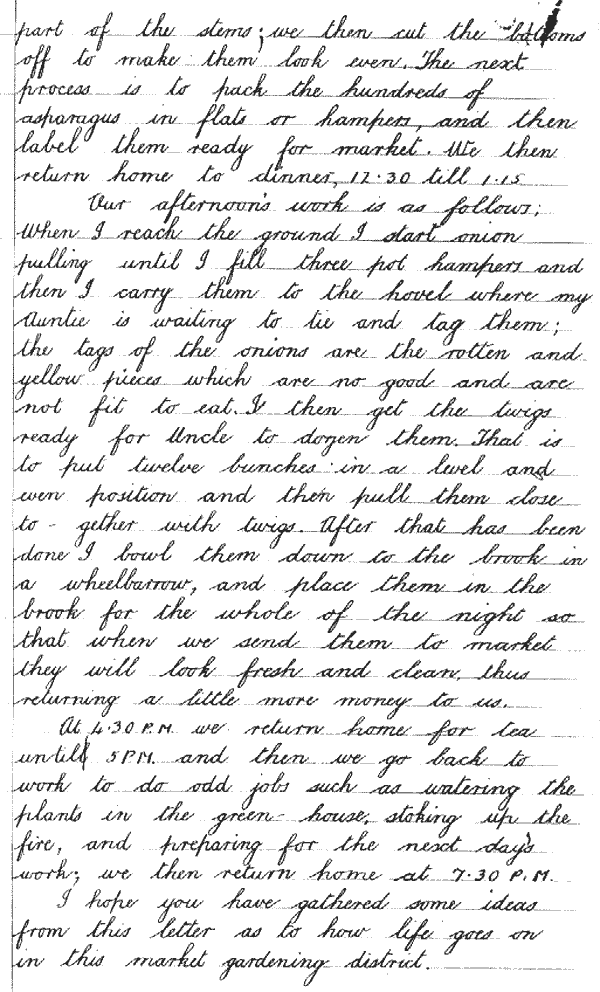 part of the stems; we then cut the bottoms
off to make them look even. The next
process is to pack the hundreds of
asparagus in flats or hampers, and then
label them ready for market. We then
return home to dinner, 12.30 till 1.15
Our afternoon's work is as follows;
When I reach the ground I start onion
pulling until I fill three pot hampers and
then I carry them to the hovel where my
Auntie is waiting to tie and tag them;
the tags of the onions are the rotten and
yellow pieces which are no good and are
not fit to eat. I then get the twigs
ready for Uncle to dozen them. That is
to put twelve bunches in a level and
even position and then pull them close
to - gether with twigs. After that has been
done I bowl them down to the brook in
a wheelbarrow, and place them in the
brook for the whole of the night so
that when we send them to market
they will look fresh and clean, thus
returning a little more money to us.
At 4.30 P.M. we return home for tea
until 5 P.M. and then we go back to
work to do odd jobs such as watering the
plants in the green- house, stoking up the
fire, and preparing for the next day's
work; we then return home at 7.30 P.M.
I hope you have gathered some ideas
from this letter as to how life goes on
in this market gardening district.